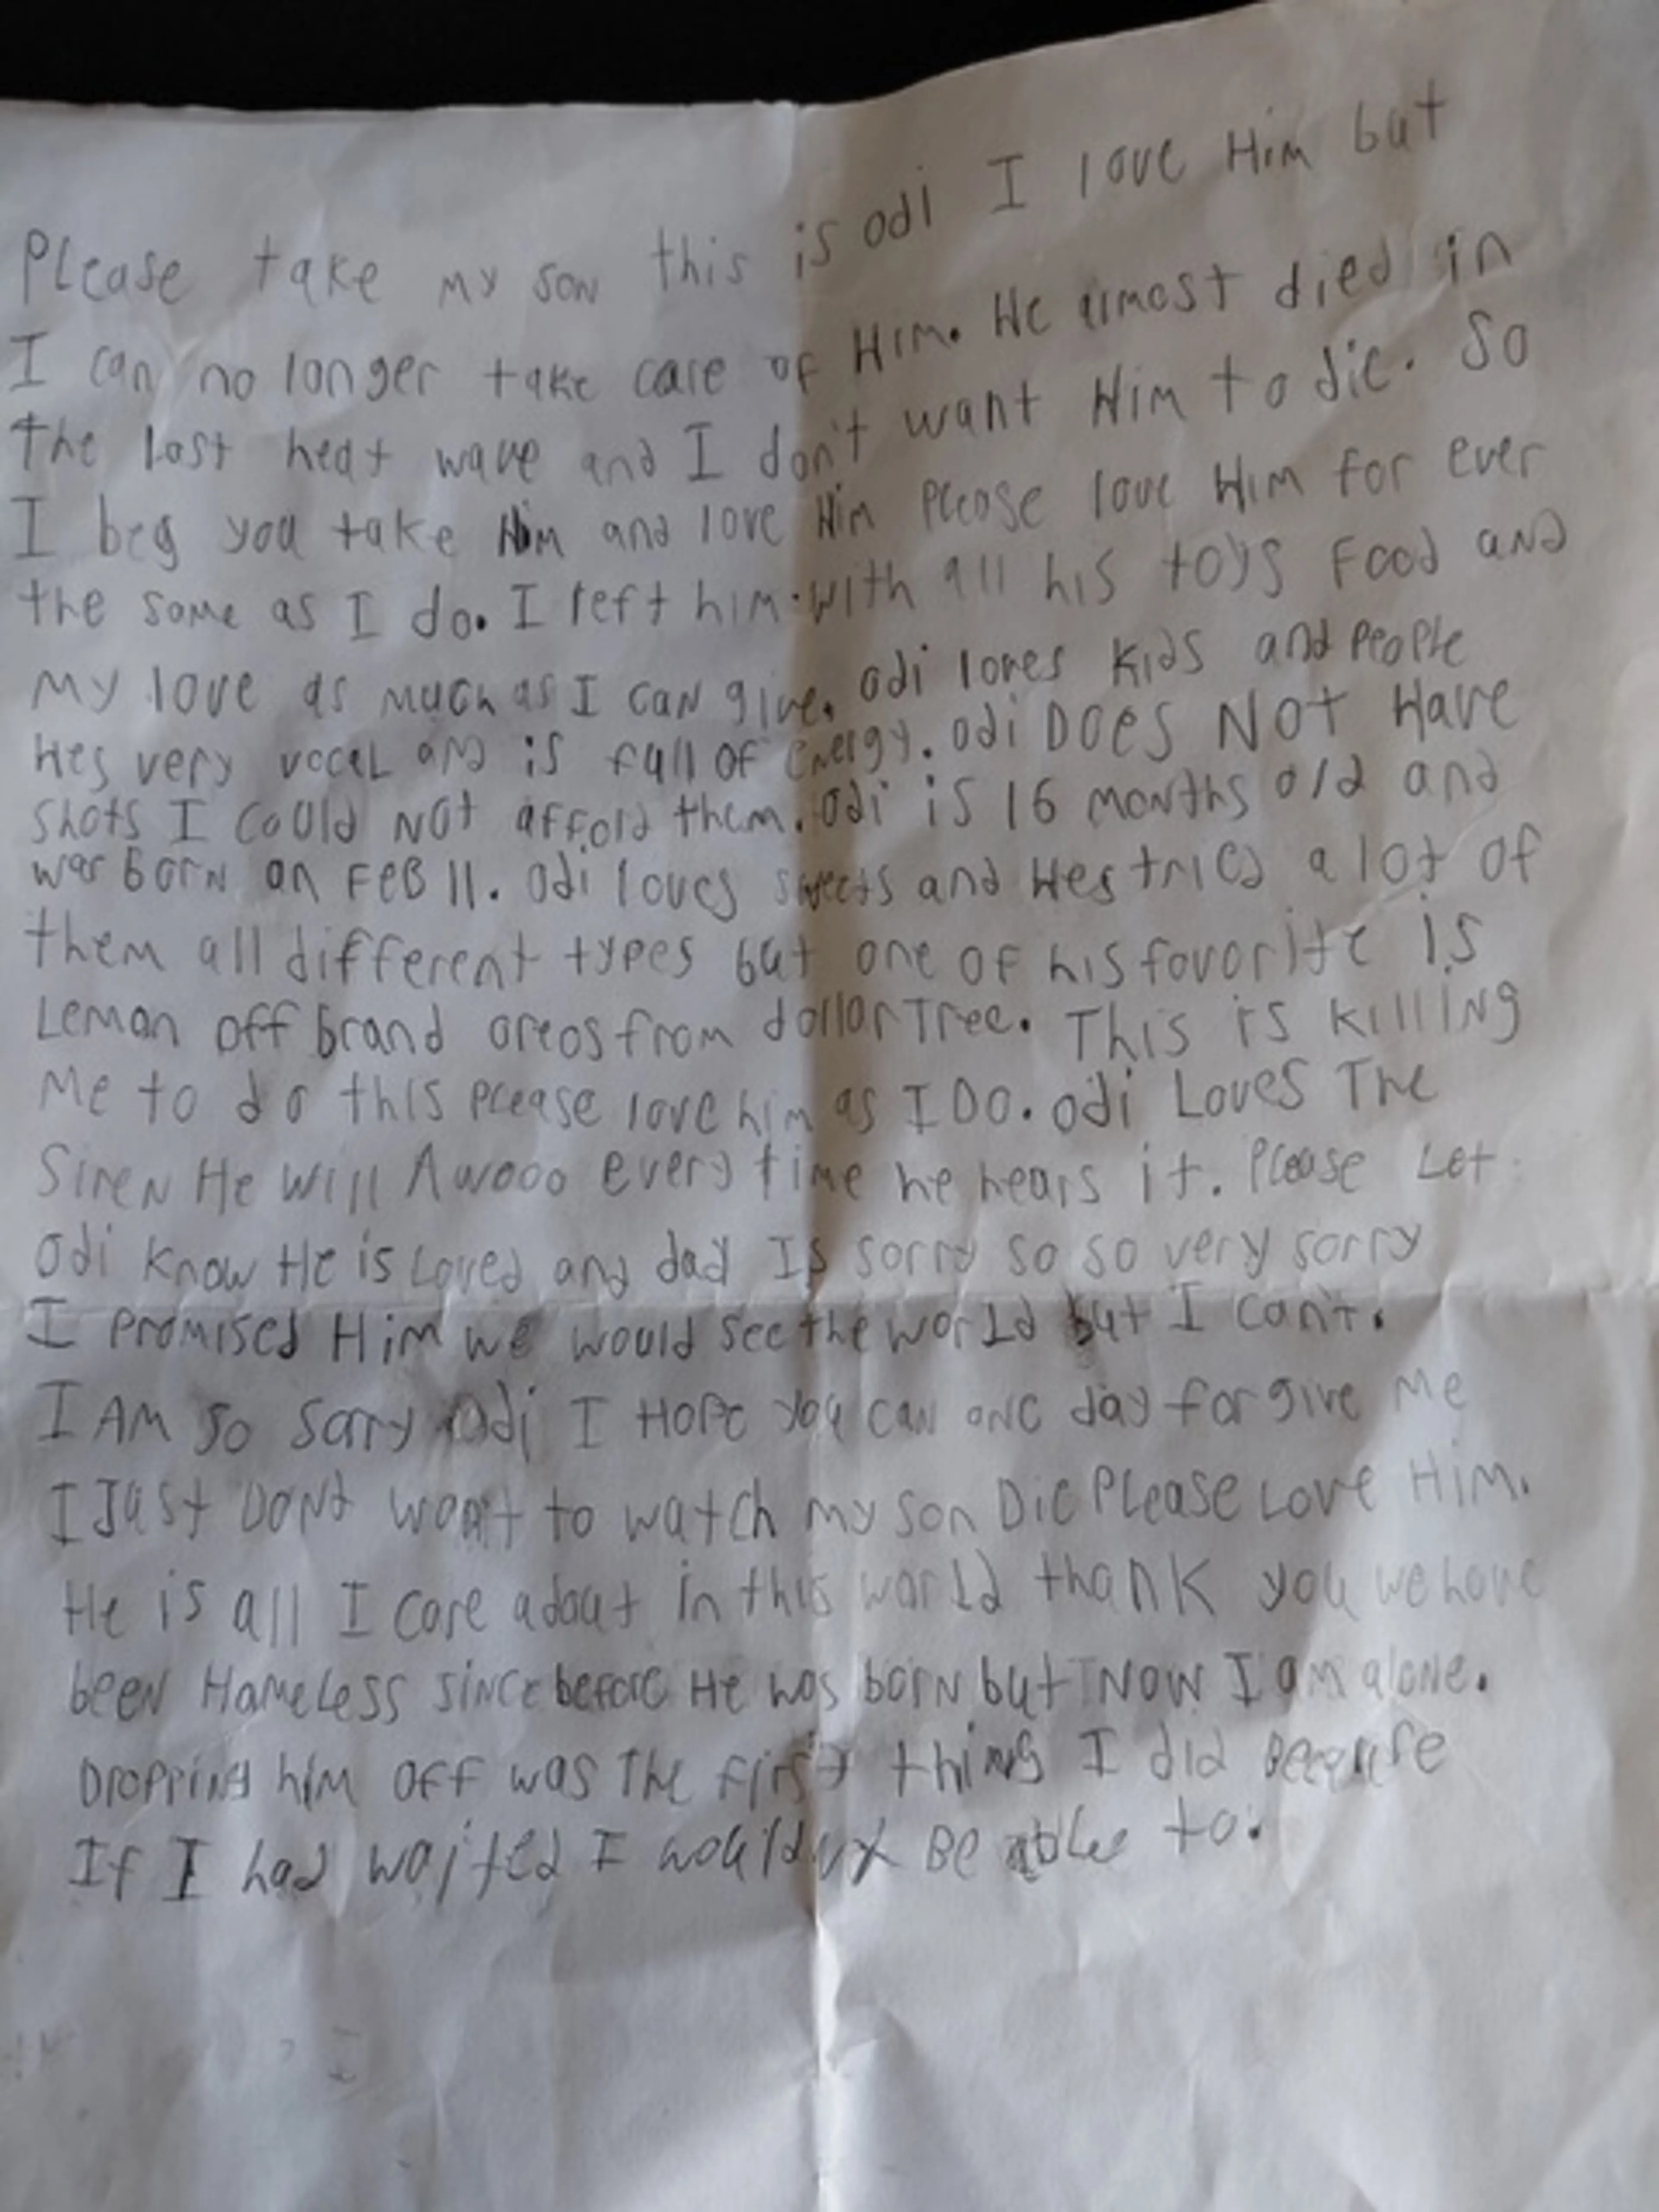 Please take my son this is odi I love Him but
I can no longer take care of Him. He almost died in
the last heat wave and I don't want Him to die. So
I beg you take Him and love Him Please love Him for ever
the same as I do. I left him with all his toys Food and
my love as much as I can give. Odi loves kids and People
Hes very vocal and is full of energy. Odi DOES NOT Have
shots I could not afford them. Odi is 16 months old and
was born on FEB 11. Odi loves sweets and Hes tried a lot of
them all different types but one of his favorite is
Lemon off brand oreos from dollar Tree. This is killing
Me to do this please love him as I DO. Odi Loves The
Siren He will Awooo every time he hears it. Please Let
Odi know He is Loved and dad Is sorry so so very sorry
I promised Him we would see the world but I can't.
I AM so sorry Odi I Hope you can one day forgive Me
I Just Dont want to watch my son Die Please Love Him.
He is all I care about in this world thank you we have
been Homeless since before He was born but Now I am alone.
Dropping him off was The first thing I did Because
If I had waited I wouldnt Be able to.